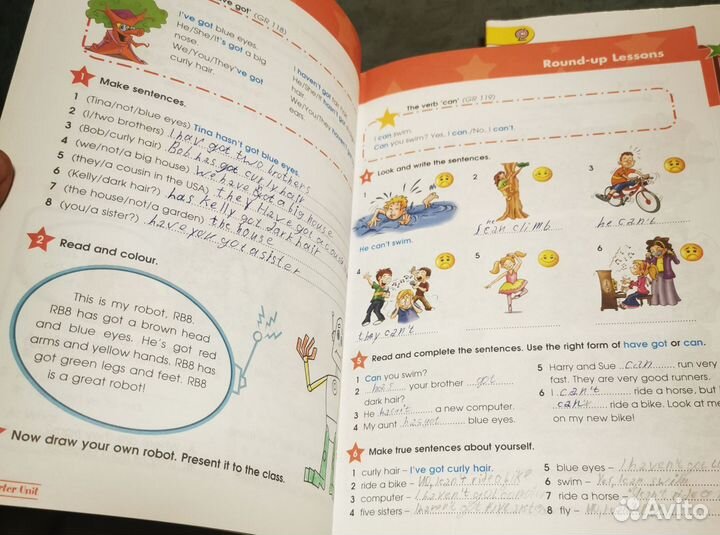 've got' (GR 118)
I've got blue eyes.
He/She/It's got a big
nose.
We/You/They've got
curly hair.
I haven't got
He/She/It
hair.
We/You/They haven't
ears.
1 Make sentences.
1 (Tina/not/blue eyes) Tina hasn't got blue eyes.
2 (I/two brothers) I hav got two brothers
3 (Bob/curly hair) Bob has got curly hair
4 (we/not/a big house) we have got a big house
5 (they/a cousin in the USA) they Have got a cousin
6 (Kelly/dark hair?) has kelly got dark hair
7 (the house/not/a garden) the house
8 (you/a sister?) have your got a sister
2 Read and colour.
This is my robot, RB8.
RB8 has got a brown head
and blue eyes. He's got red
arms and yellow hands. RB8 has
got green legs and feet. RB8
is a great robot!
Now draw your own robot. Present it to the class.
rter Unit
Round-up Lessons
The verb 'can' (GR 119)
I can swim.
Can you swim? Yes, I can /No, I can't.
4 Look and write the sentences.
1
2
3
He can't swim.
can climb
he can't
4
5
6
they can't
5 Read and complete the sentences. Use the right form of have got or can.
1 Can you swim?
2 has your brother got
dark hair?
3 He hasn't a new computer.
4 My aunt has got blue eyes.
5 Harry and Sue can run very
fast. They are very good runners.
6 I can't ride a horse, but I
can ride a bike. Look at me
on my new bike!
6 Make true sentences about yourself.
1 curly hair – I've got curly hair.
2 ride a bike – can't ride
3 computer – I haven't got
4 five sisters – haven't got five sisters
5 blue eyes – I haven't got
6 swim – Yes, I can swim
7 ride a horse –
8 fly –
Avito